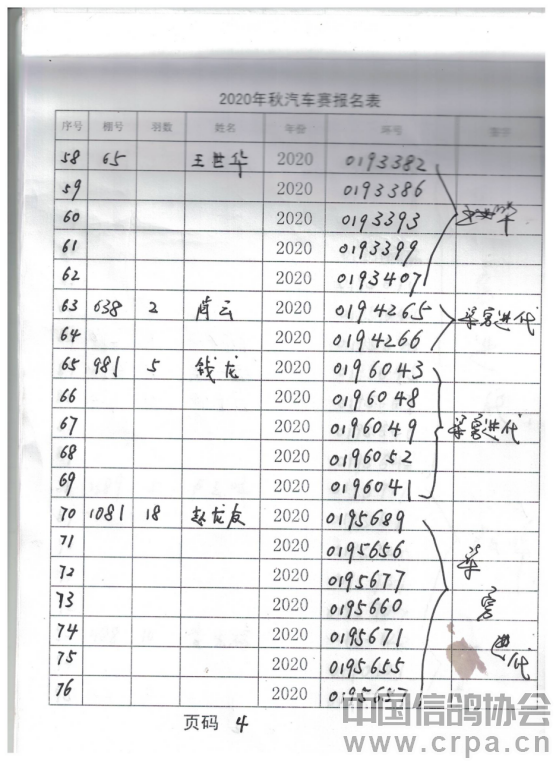 2020年秋汽车赛报名表
序号 棚号 羽数 姓名 年份 环号 签字
58 65 王世华 2020 0193382
59 2020 0193386
60 2020 0193393
61 2020 0193399
62 2020 0193407
63 638 2 肖云 2020 0194265
64 2020 0194266
65 981 5 钱龙 2020 0196043
66 2020 0196048
67 2020 0196049
68 2020 0196052
69 2020 0196041
70 1081 18 赵龙友 2020 0195689
71 2020 0195656
72 2020 0195677
73 2020 0195660
74 2020 0195671
75 2020 0195655
76 2020 0195657
页码 4
中国信鸽协会
www.crpa.cn